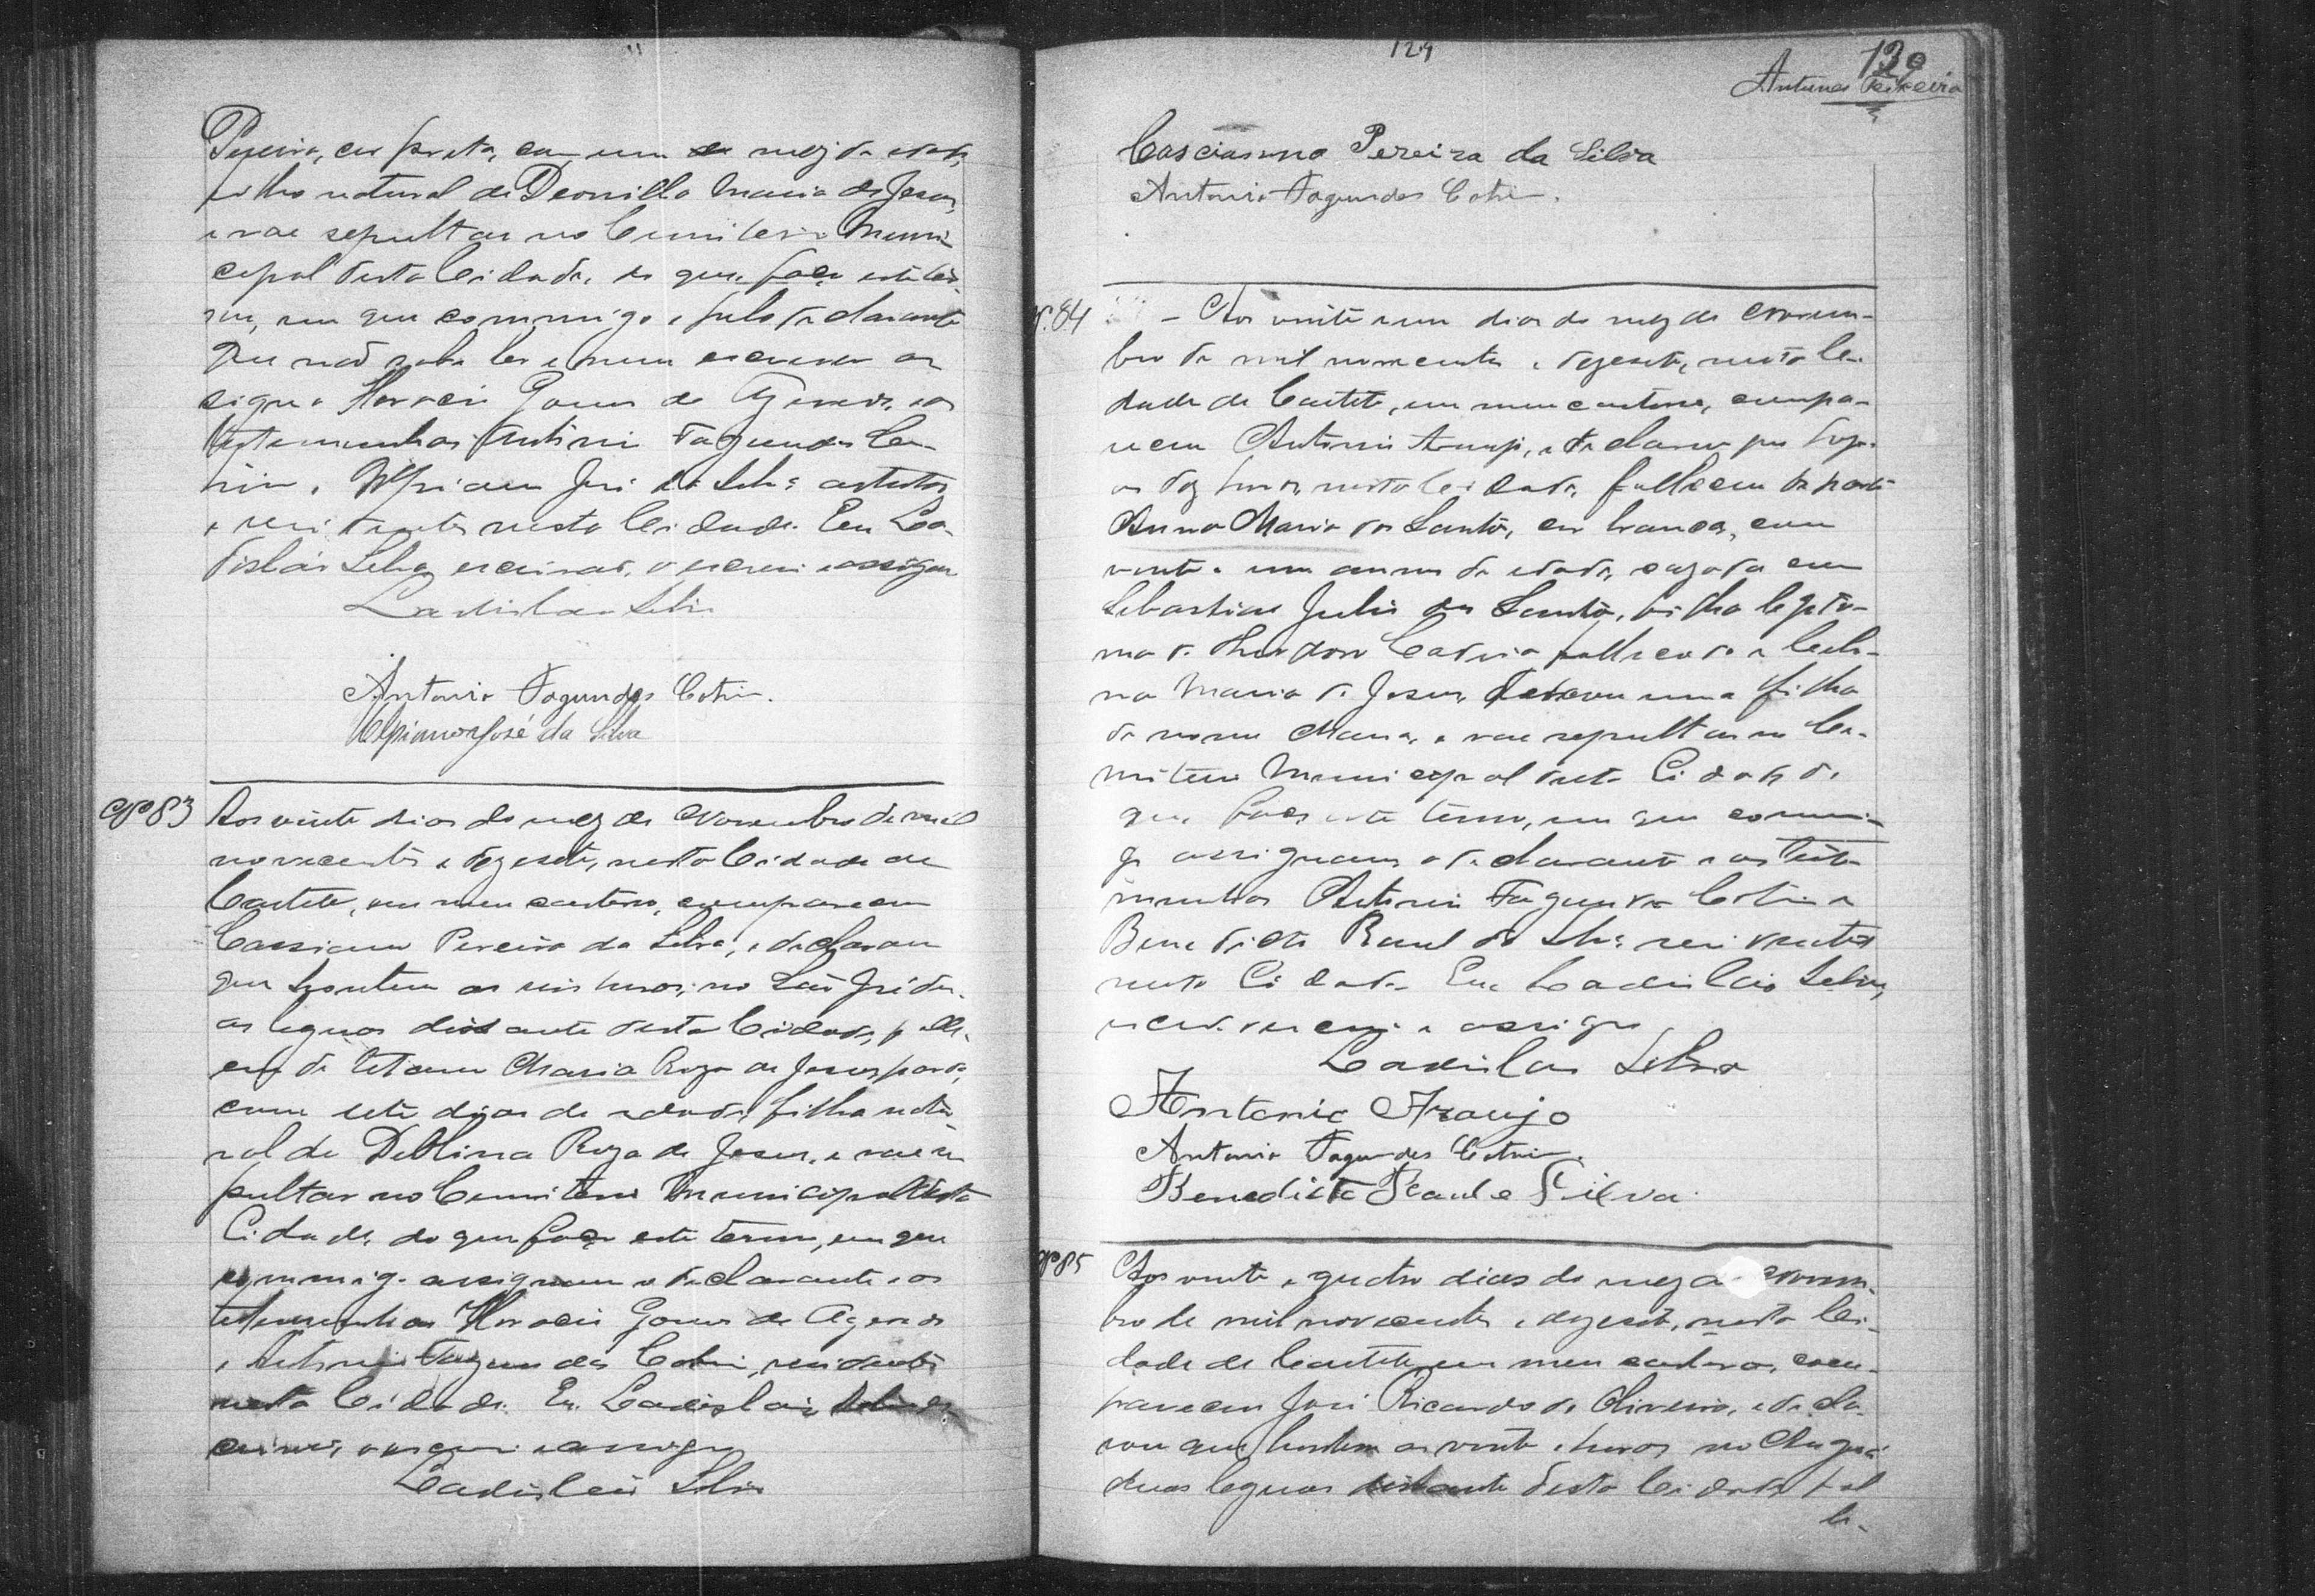 Pereira, cor preta, com um mez de edade,
filho natural de Deonilla Maria de Jesus,
e vae sepultar no Cemiterio Muni-
cipal desta Cidade, do que faço este ter-
mo, em que commigo e pelo declarante
que não sabe ler e nem escrever as-
signa Horacio Gomes de Azevedo, e as
testemunhas Antonio Fagundes Co-
trim e Ulpiano José da Silva
e residentes nesta Cidade. Eu La-
disláo Silva escrivão, o escrevi e assigno
Ladislao Silva
Antonio Fagundes Cotrim.
Ulpiano José da Silva
Nº 83 Aos vinte dias do mez de Novembro de mil
novecentos e dezesete, nesta Cidade de
Caeteté, em meu cartorio, compareceu
Cassiano Pereira da Silva, e declarou
que hontem as seis horas, no São José du-
as leguas distante desta Cidade, falle-
ceu de tetano Maria Roza de Jesus, parda,
com sete dias de edade, filha natu-
ral de Delfina Roza de Jesus, e vae se-
pultar no Cemiterio Municipal desta
Cidade, do que faço este termo, em que
commigo assignam o declarante e as
testemunhas Horacio Gomes de Azevedo
e Antonio Fagundes Cotrim, residentes
nesta Cidade. Eu Ladisláo Silva es-
crivão, o escrevi e assigno
Ladisláo Silva
124
130
Antunes Teixeira
Casciano Pereira da Silva
Antonio Fagundes Cotrim.
N. 84 - Aos vinte e um dias do mez de Novem-
bro de mil novecentos e dezesete, nesta Ci-
dade de Caeteté, em meu cartorio, compa-
receu Antonio Araujo, e declarou que hoje
as dez horas, nesta Cidade, falleceu de parto
Anna Maria dos Santos, cor branca, com
vinte e um annos de edade, cazada com
Sebastião Julio dos Santos, filha legiti-
ma de Theodoro fallecido e
na Maria de Jesus, deixou uma filha
de nome Maria, e vae sepultar no Ce-
miterio Municipal desta Cidade, do
que faço este termo, em que commi-
go assignam o declarante e as teste-
munhas Antonio Fagundes Cotrim e
Benedicto Raul da Silva residentes
nesta Cidade. Eu Ladisláo Silva,
escrivão escrevi e assigno
Ladislao Silva
Antonio Araujo
Antonio Fagundes Cotrim.
Benedicto Raul e Silva.
Nº 85 Aos vinte e quatro dias do mez de Novem-
bro de mil novecentos e dezesete, nesta Ci-
dade de Caeteté, em meu cartorio, com-
pareceu José Ricardo de Oliveira, e decla-
rou que hontem as vinte horas no
duas leguas distante desta Cidade fal
le-